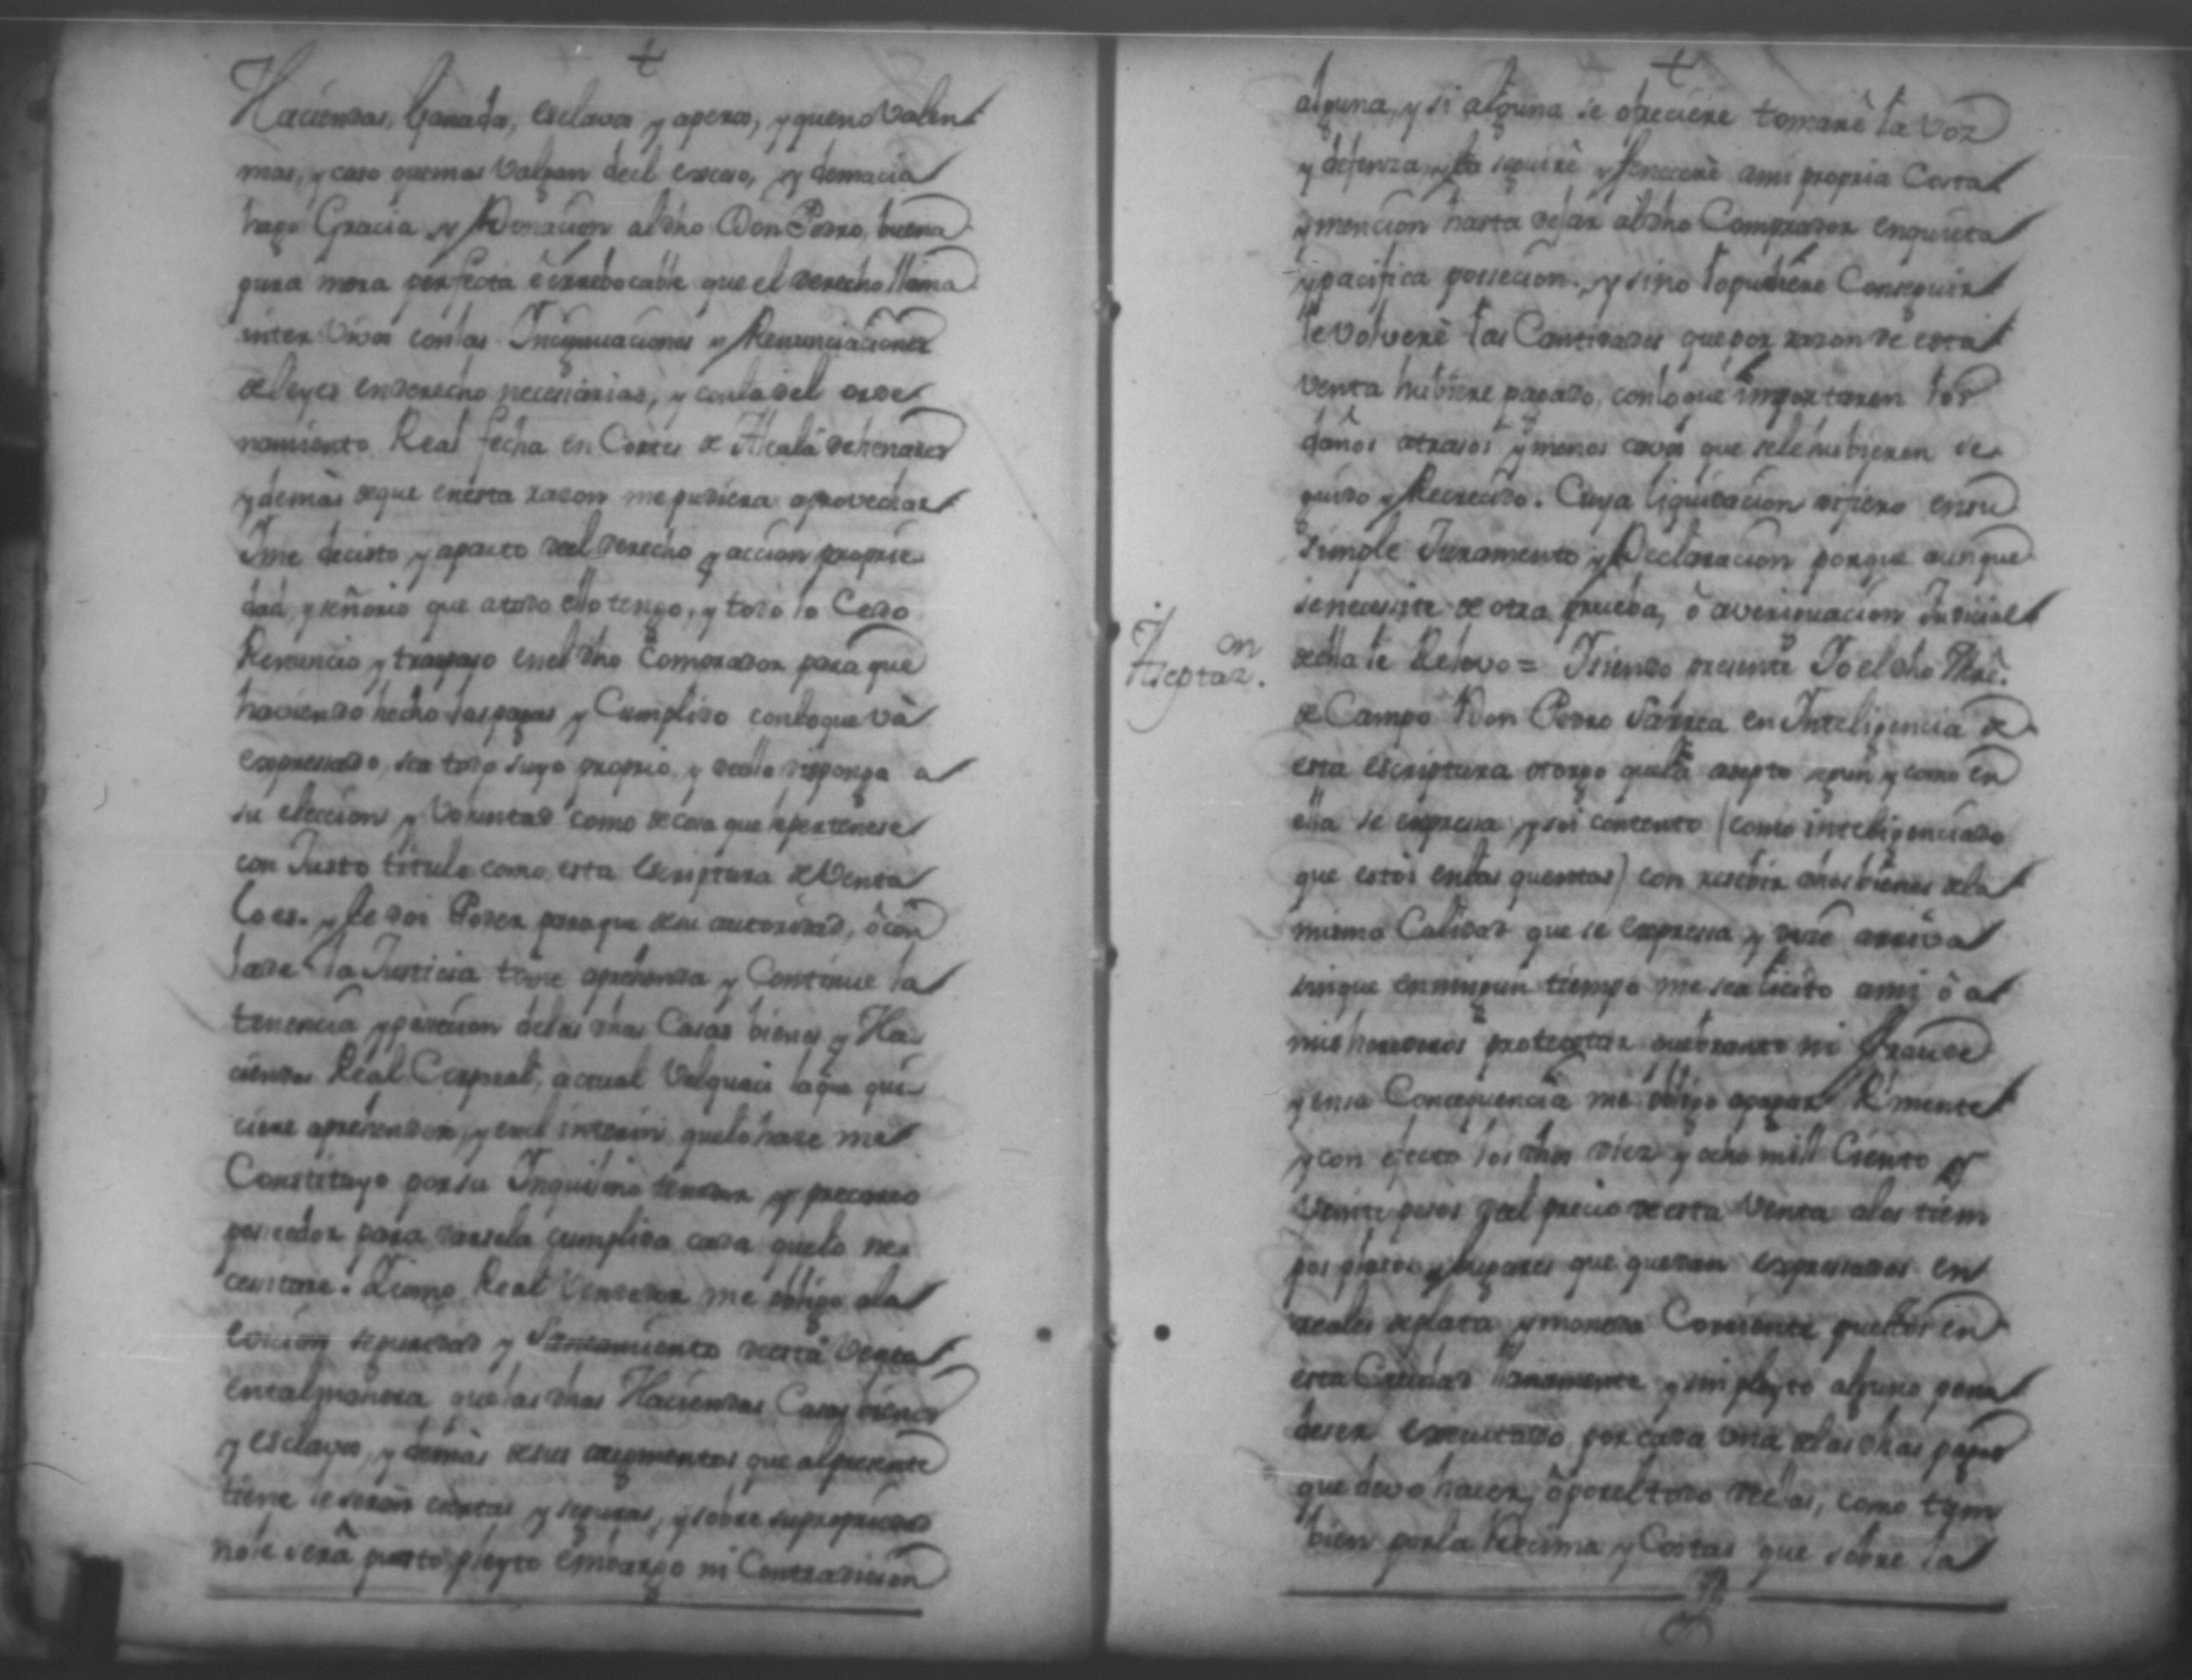 +
Haciendas, Ganado, esclavos y aperos, y que no valen
mas, y caso que mas valgan de el exceso, y demacia
hago Gracia y Donacion al dho Don Pedro, buena
pura mera perfecta è irrebocable que el derecho llama
inter vivos con las Incinuaciones y Renunciaciones
de leyes en derecho necesarias, y con la del orde
namiento Real fecha en Cortes de Alcalà de henares
y demàs de que en esta razon me pudiera aprovechar
Y me decisto y aparto de el derecho y accion proprie
dad, y señorio que a todo ello tengo, y todo lo Cedo
Renuncio y traspaso en el dho Comprador para que
haviendo hecho las pagas y Cumplido con lo que và
expressado, sea todo suyo proprio, y de ello disponga a
su eleccion y Voluntad como de cosa que le pertenese
con Justo titulo como esta Escriptura de Venta
lo es. y le doi Poder para que de su autoridad, ò con
la de la Justicia tome aprehenda y Continue la
tenencia y posecion de las dhas Casas bienes y Ha
ciendas Real Corporal, actual Velquasi la que qui
ciere aprehender, y en el interin que lo hace me
Constituyo por su Inquilino tenedor y precario
poseedor para darsela cumplida cada que lo ne
cesitare. Y como Real Vendedor me obligo a la
eviccion seguridad y Saneamiento de esta Venta
en tal manera que las dhas Haciendas Casas bienes
y esclavos, y demàs de sus aumentos que al presente
tiene le seràn ciertas y seguras, y sobre su propriedad
no le serà puesto pleyto embargo ni Contradicion
+
alguna, y si alguna se ofreciere tomarè la voz
y defenza, y lo seguirè y fenecerè a mi propria Costa
y mencion hasta dejar al dho Comprador en quieta
y pacifica possecion. y si no lo pudiere Conseguir
le volverè las Cantidades que por razon de esta
venta hubiere pagado, con lo que importaren los
daños atrasos y menos cavos que se le hubieren se
guido y Recrecido. Cuya liquidacion difiero en su
simple Juramento y Declaracion porque aunque
se necesite de otra prueba, ò averiguacion Judicial
de ella le Relevo = Y siendo presente Yo el dho Mrê.
Aceptaz.on
de Campo Don Pedro Larrea en Inteligencia de
esta escriptura otorgo que la acepto segun y como en
ella se expressa y soi contento (como inteligenciado
que estoi en las quentas) con recebir dhos bienes de la
misma Calidad que se expressa y dice arriva
sin que en ningun tiempo me sea licito a mi ò a
mis herederos protestar quebranto ni fraude
y en su Consequencia me obligo a pagar Rmente
y con efecto los dhos diez y ocho mill Ciento y
Veinte pesos de el precio de esta Venta a los tiem
pos plasos y lugares que quedan expressados en
reales de plata y moneda Corriente puestos en
esta Ciudad llanamente y sin pleyto alguno pena
de ser executado por cada una de las dhas pagas
que devo hacer, ò por el todo de ellas, como tam
bien por la Decima y Costas que sobre la